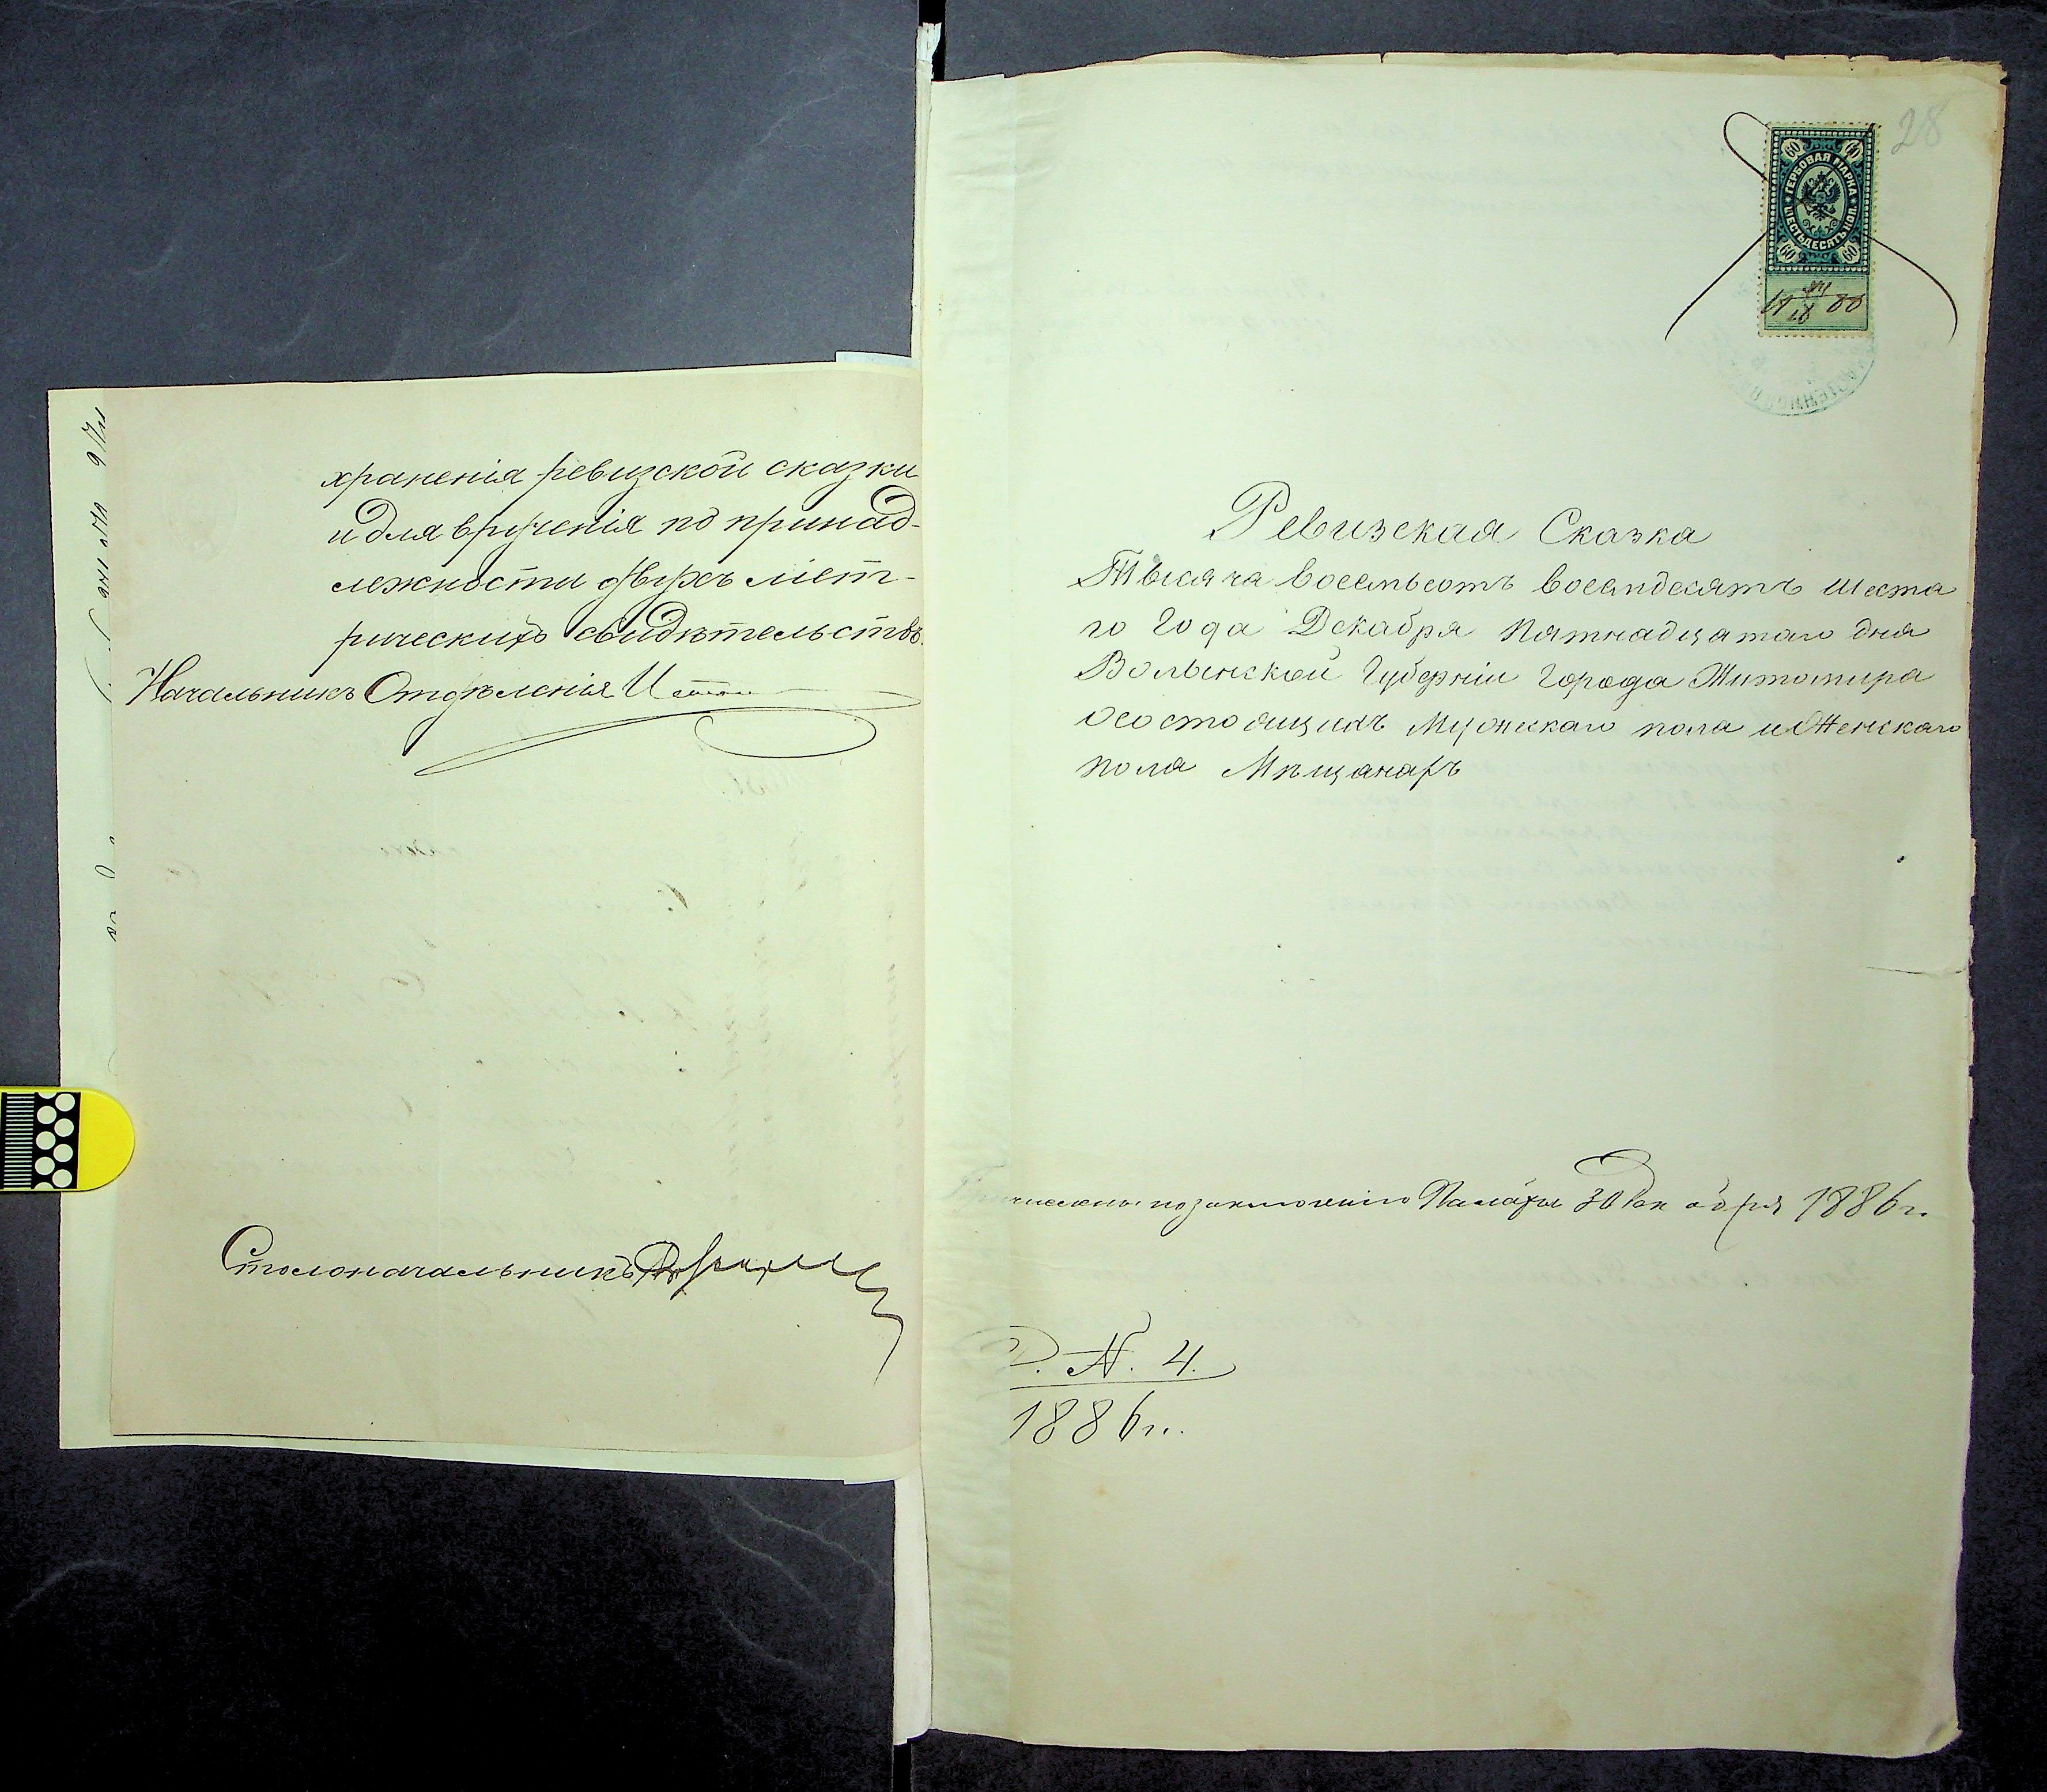 храненія ревизской сказки
и для врученія по принад-
лежности двухъ мет-
рическихъ свидѣтельствъ.
Начальникъ Отдѣленія
Столоначальникъ
28
60 60
ГЕРБОВАЯ МАРКА
ШЕСТЬДЕСЯТЪ КОП.
60 60
Ревизская Сказка
Тысяча восемьсотъ восемдесятъ шеста
го Года Декабря пятнадцатаго дня
Волынской Губерніи Города Житомира
о состоящихъ Мужескаго пола и Женскаго
пола Мѣщанахъ
численны по заключенію Палаты 30 Декабря 1886 г.
Р. N. 4.
1886 г.